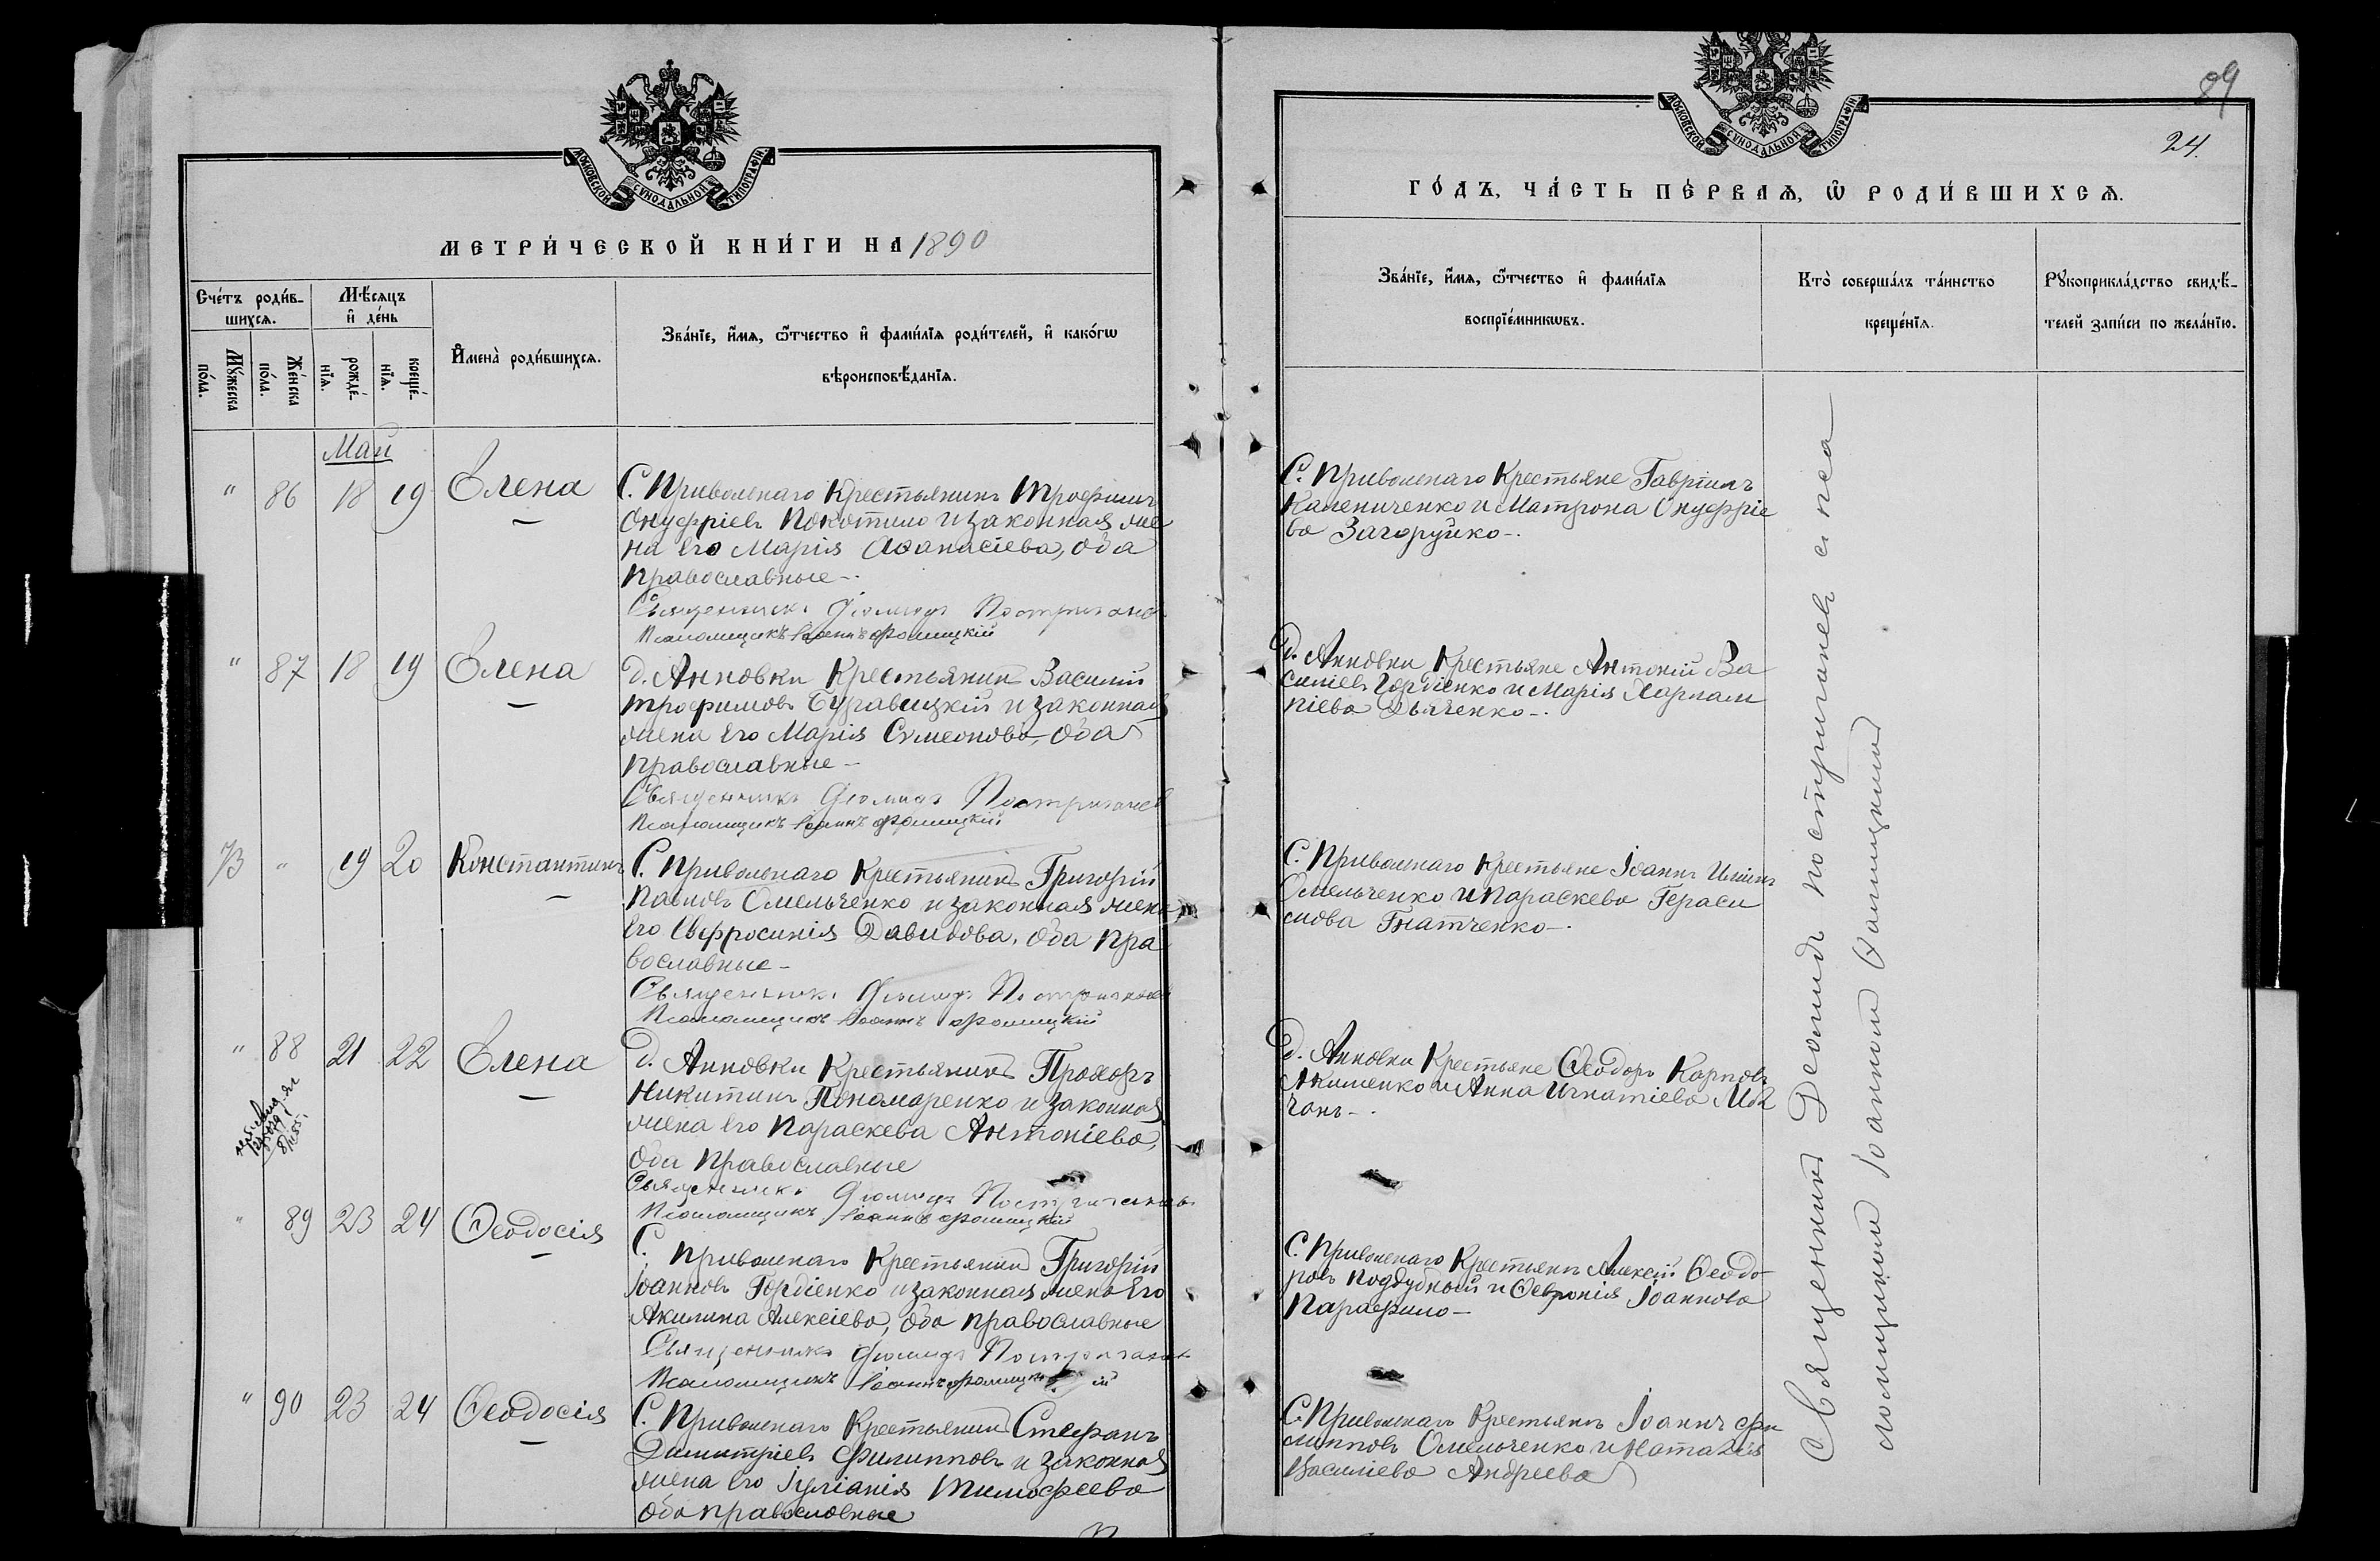 МОСКОВСКОЙ СѴНОДАЛЬНОЙ ТИПОГРАФІИ.
МЕТРИ́ЧЕСКОЙ КНИ́ГИ НА 1890
Сче́тъ роди́в-
шихсѧ.
Мѣ́сяцъ
и҆ де́нь
Мꙋ́жеска
по́ла.
Же́нска
по́ла.
рожде́-
нїѧ.
креще́-
нїѧ.
И҆мена̀ роди́вшихсѧ.
Зва́нїе, и҆́мѧ, ѻ҆́тчество и҆ фами́лїѧ роди́телей, и҆ како́гѡ
вѣроисповѣ́данїѧ.
Май
" 86 18 19 Елена
С. Привольнаго Крестьянинъ Трофимъ
Онуфріевъ Покотило и законная же
на его Марія Аѳанасіева, оба
православные -
Священникъ Діомидъ Постригачевъ
Псаломщикъ Іоаннъ
" 87 18 19 Елена
д. Анновки Крестьянинъ Василій
Трофимовъ Буравицкій и законная
жена его Марія Сѵмеонова, оба
православные -
Священникъ Діомидъ Постригачевъ
Псаломщикъ Іоаннъ
73 " 19 20 Константинъ
С. Привольнаго Крестьянинъ Григорій
Павловъ Омельченко и законная жена
его Евфросинія Давидова, оба пра
вославные -
Священникъ Діомидъ Постригачевъ
Псаломщикъ Іоаннъ
" 88 21 22 Елена
д. Анновки Крестьянинъ Прохоръ
Никитинъ Пономаренко и законная
жена его Параскева Антоніева,
оба православные
Священникъ Діомидъ Постригачевъ
Псаломщикъ Іоаннъ
" 89 23 24 Ѳеодосія
С. Привольнаго Крестьянинъ Григорій
Іоанновъ Гордіенко и законная жена его
Акилина Алексіева, оба православные
Священникъ Діомидъ Постригачевъ
Псаломщикъ Іоаннъ
" 90 23 24 Ѳеодосія
С. Привольнаго Крестьянинъ Стефанъ
Димитріевъ Филипповъ и законная
жена его Іуліанія Тимофеева
оба православные
89
24.
МОСКОВСКОЙ СѴНОДАЛЬНОЙ ТИПОГРАФІИ.
ГО́ДЪ, ЧА́СТЬ ПЕ́РВАѦ, Ѡ҆ РОДИ́ВШИХСѦ.
Зва́нїе, и҆́мѧ, ѻ҆́тчество и҆ фами́лїѧ
воспрїе́мникѡвъ.
Кто̀ соверша́лъ та́инство
креще́нїѧ.
Рꙋкоприкла́дство свидѣ́-
телей за́писи по жела́нїю.
С. Привольнаго Крестьяне Гавріилъ
Калениченко и Матрона Онуфріе
ва Загоруйко -.
д. Анновки Крестьяне Антоній Ва
силіевъ Гордіенко и Марія Харлам
піева Дьяченко -.
С. Привольнаго Крестьяне Іоаннъ Ильинъ
Омельченко и Параскева Гераси
мова Гнатченко -.
д. Анновки Крестьяне Ѳеодоръ Карповъ
Акименко и Анна Игнатіева Мов
чанъ -.
С. Привольнаго Крестьяне Алексій Ѳеодо
ровъ Поддубный и Ѳевронія Іоаннова
Парафило -
С. Привольнаго Крестьяне Іоаннъ Фи
липповъ Омельченко и Наталія
Василіева Андреева
Священникъ Деомидъ Постригачевъ с пса
ломщикомъ Іоанномъ